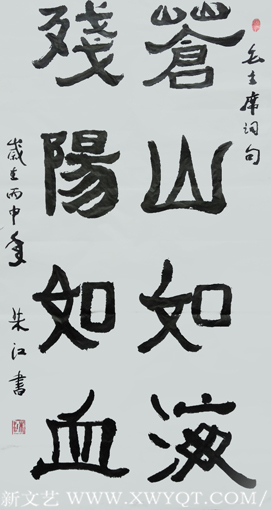 蒼山如海
殘陽如血
毛主席词句
歲至丙申年
朱江書
新文艺 WWW.XWYQT.COM/